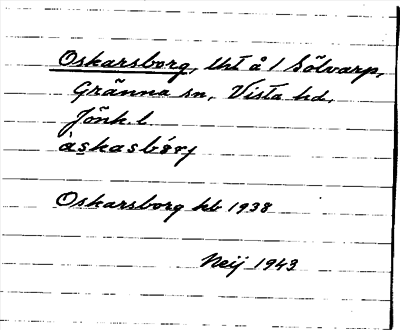 Oskarsborg, lht å 1 Sölvarp,
Gränna sn, Vista hd,
Jönk. l.
àskasbórj
Oskarsborg kb 1938
Neij 1943